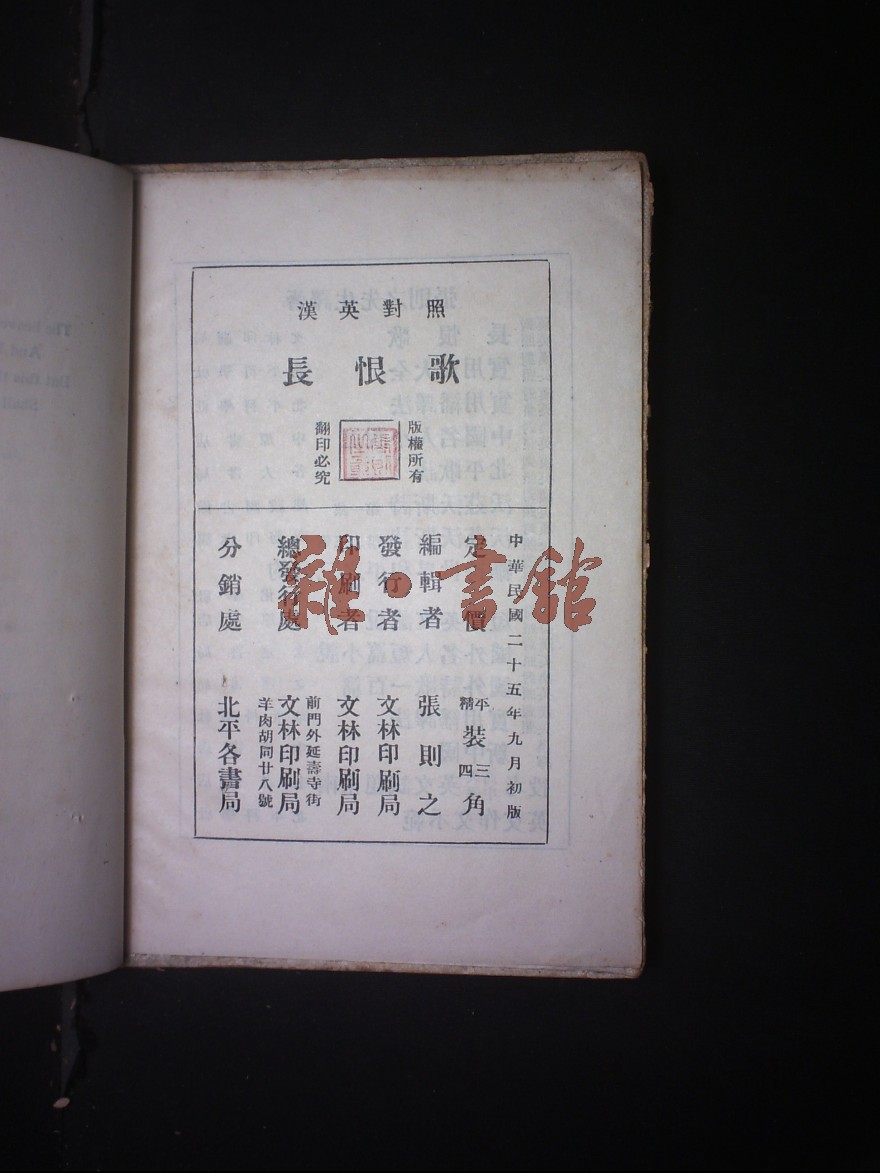 漢英對照
長恨歌
版權所有
翻印必究
中華民國二十五年九月初版
定價 平精裝三四角
編輯者 張則之
發行者 文林印刷局
印刷者 文林印刷局
總發行處 前門外延壽寺街 文林印刷局 羊肉胡同廿八號
分銷處 北平各書局
雜·書館